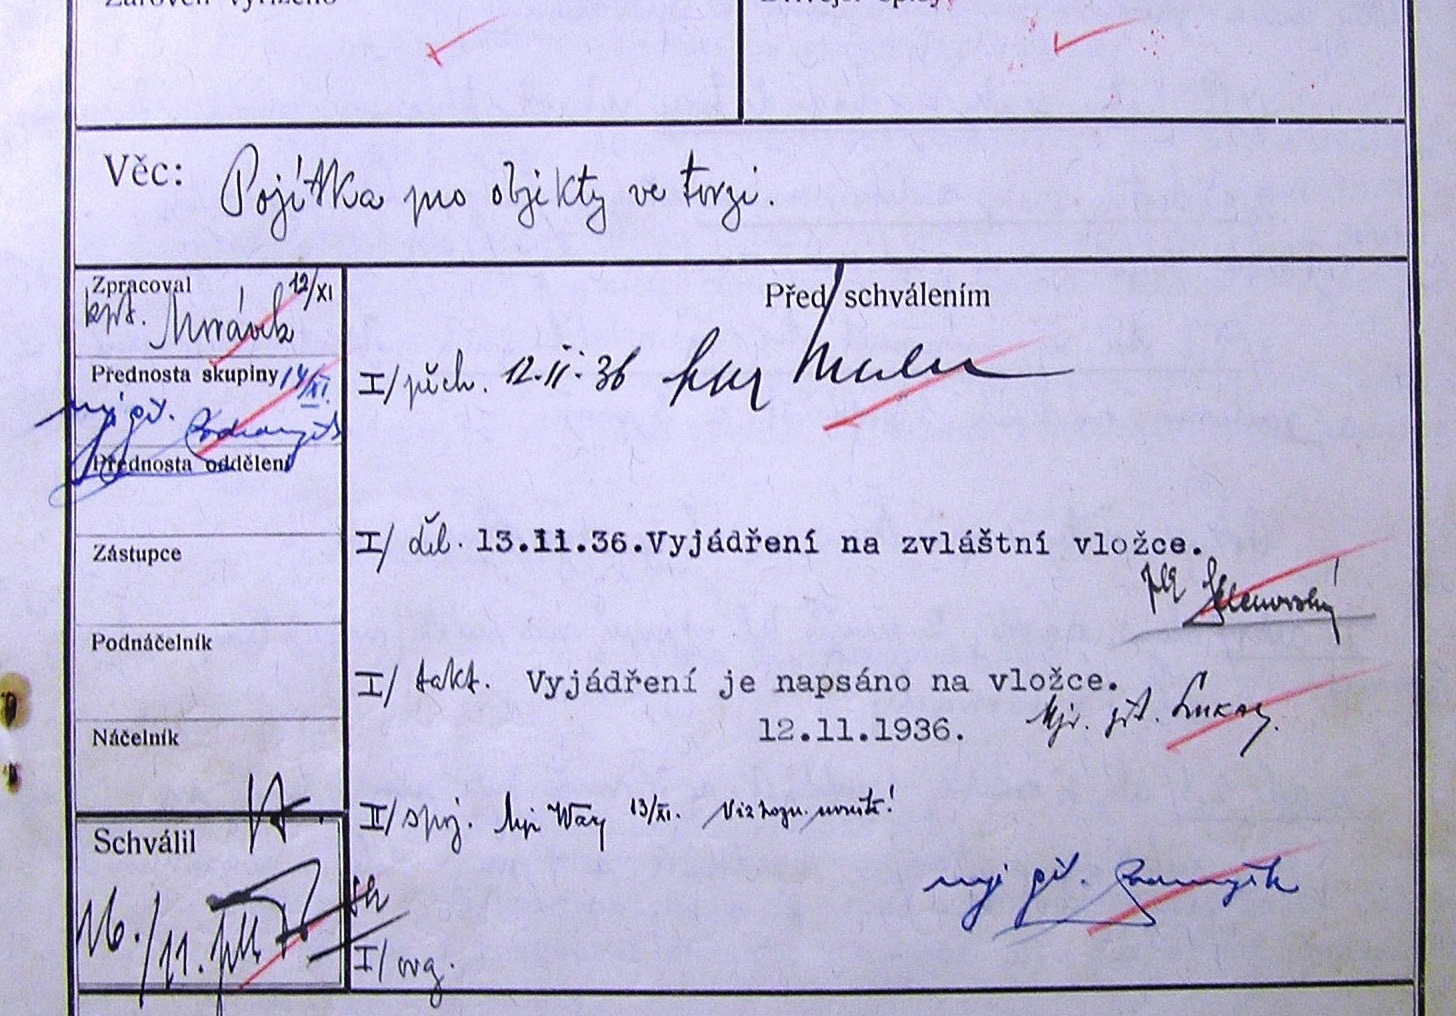 Zároveň vyřízeno
Dřívější spisy
Věc: Pojítka pro objekty ve tvrzi.
Zpracoval 12/XI
kpt. Mrávik
Před schválením
Přednosta skupiny 14/XI.
I/pěch. 12.11.36
mjr gšt.
Přednosta oddělení
I/ děl. 13.11.36.Vyjádření na zvláštní vložce.
Zástupce
plk
Podnáčelník
I/ takt. Vyjádření je napsáno na vložce.
12.11.1936. Mjr. gšt. Lukas.
Náčelník
II/spoj. 13/XI. Viz uvnitř!
Schválil
mjr gšt.
16./11.
I/ org.